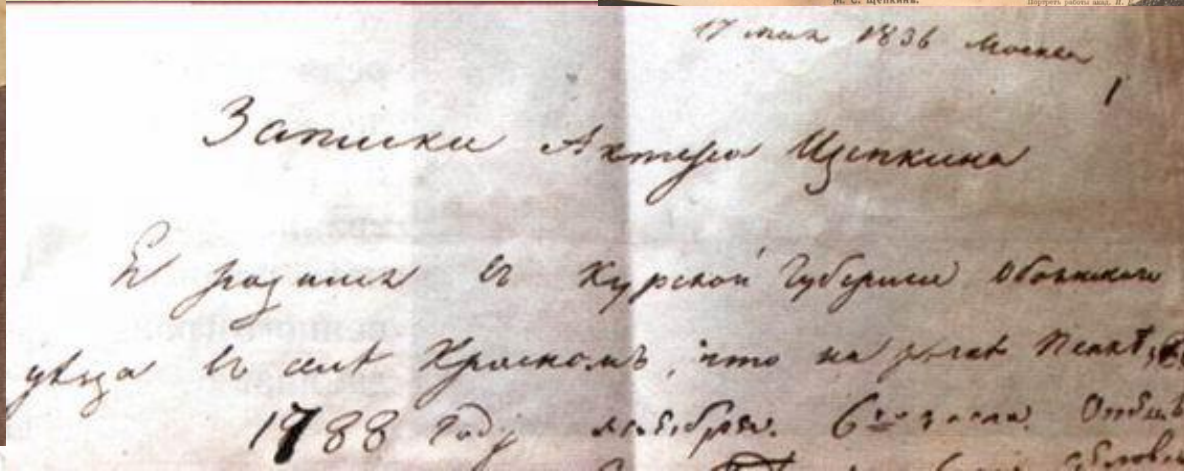 М. С. Щепкинъ.
Портретъ работы акад.
17 мая 1836 Москва
1
Записки Актера Щепкина
Я родился въ Курской Губернiи Обоянскаго
уѣзда въ селѣ Красномъ, что на рѣчкѣ Пенкѣ,
1788 году ноября 6го числа. Отецъ